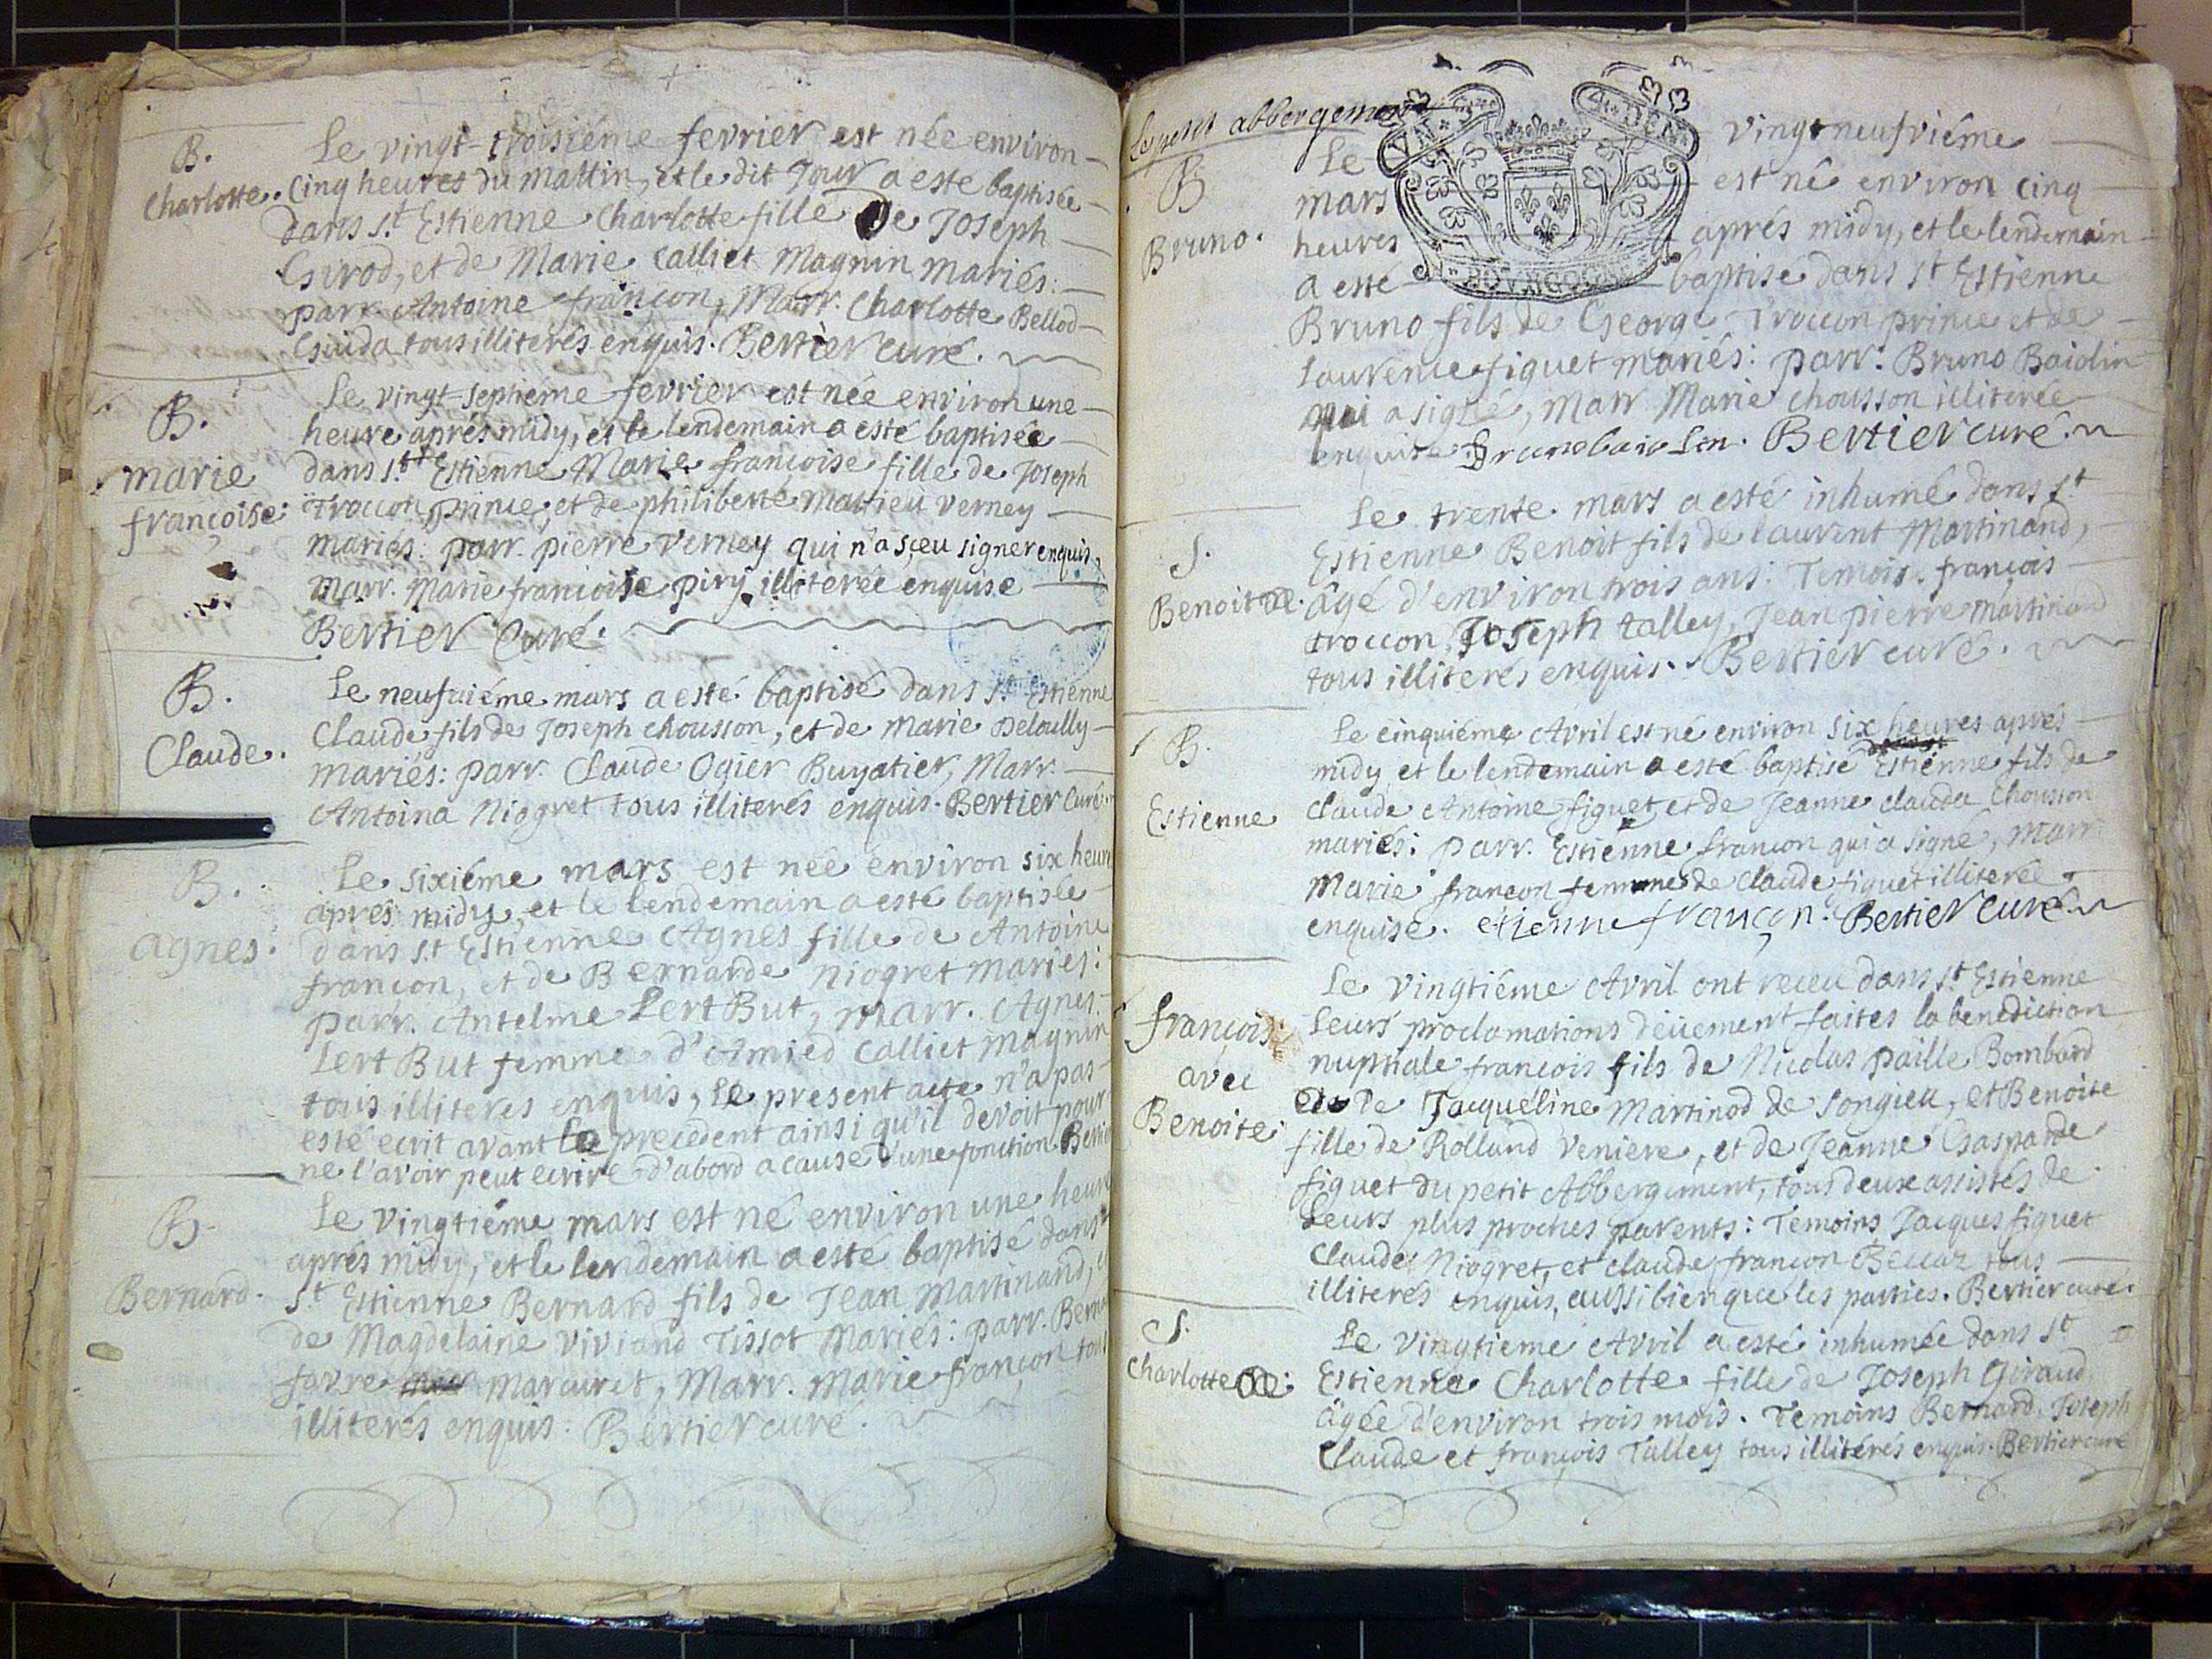 B.
Charlotte.
Le vingt-troisiéme fevrier est née environ
cinq heures du mattin, et le dit Jour a esté baptisée
dans s.t Estienne Charlotte fille De Joseph
Girod, et de Marie Calliet Magnin mariés:
parr. Antoine françon, Marr. Charlotte Bellod
Guida tous illiterés enquis. Bertier curé.
B.
marie
françoise:
Le vingt-septieme fevrier est née environ une
heure aprés midy, et le lendemain a esté baptisée
dans s.t Estienne Marie françoise fille de Joseph
Troccon prince, et de philiberte Mathieu Verney
mariés: parr. pierre Verney qui n'a sçeu signer enquis,
Marr. Marie françoise piry illiterée enquise
Bertier Curé.
B.
Claude.
Le neufuiéme mars a esté baptisé dans s.t Estienne
Claude fils de Joseph Chousson, et de Marie Deloully
mariés: parr. Claude Ogier Buyatier, Marr.
Antoina Niogret tous illiterés enquis. Bertier Curé.
B.
Agnes.
Le sixiéme mars est née environ six heures
aprés midy, et le lendemain a esté baptisée
dans s.t Estienne Agnes fille de Antoine
françon, et de Bernarde Niogret mariés:
parr. Antelme Lert But, marr. Agnes
Lert But femme d'Amied Calliet Magnin
tous illiteres enquis, le present acte n'a pas
esté ecrit avant le precedent ainsi qu'il devoit pour
ne l'avoir peut ecrire d'abord a cause d'une fonction. Bertier
B.
Bernard.
Le vingtiéme mars est né environ une heure
aprés midy, et le lendemain a esté baptisé dans
s.t Estienne Bernard fils de Jean Martinand, et
de Magdelaine Viviand Tissot Mariés: parr. Bernard
favre marcuret, Marr. Marie françon tous
illiterés enquis. Bertier curé.
Le petit abbergement
B
Bruno.
Le vingt neufviéme
mars est né environ cinq
heures aprés midy, et le lendemain
a esté baptisé dans s.t Estienne
Bruno fils de George Troccon prince et de
Laurence figuet mariés: parr. Bruno Baidin
qui a signé, marr Marie chousson illiterée
enquise Bruno Bertier curé.
S.
Benoit
Le trente mars a esté inhumé dans s.t
Estienne Benoit fils de laurent Martinand,
âgé d'environ trois ans: Temoins françois
troccon, Joseph talley, Jean pierre martinand
tous illiterés enquis. Bertier curé.
B.
Estienne
Le cinquiéme Avril est né environ six heures aprés
midy et le lendemain a esté baptisé Estienne fils de
Claude Antoine figuet, et de Jeanne Clauda Chousson
mariés: parr. Estienne françon qui a signé, Marr
Marie françon femme de Claude figuet illiterée
enquise. etienne françon. Bertier Curé.
françois
avec
Benoite:
Le vingtiéme Avril ont receu dans s.t Estienne
leurs proclamations deüement faites la benediction
nuptiale françois fils de Nicolas paille Bombard
et de Jacqueline Martinod de Songieu, et Benoite
fille de Rolland Veniere, et de Jeanne Gasparde
figuet du petit Abbergement, tous deux assistés de
leurs plus proches parents: Temoins Jacques figuet
Claude Niogret, et claude françon Beccaz tous
illiterés enquis, aussi bien que les parties. Bertier curé.
S.
Charlotte
Le vingtieme Avril a esté inhumée dans s.t
Estienne Charlotte fille de Joseph Giraud
âgée d'environ trois mois. Temoins Bernard, Joseph
Claude et françois Talley tous illitérés enquis. Bertier curé